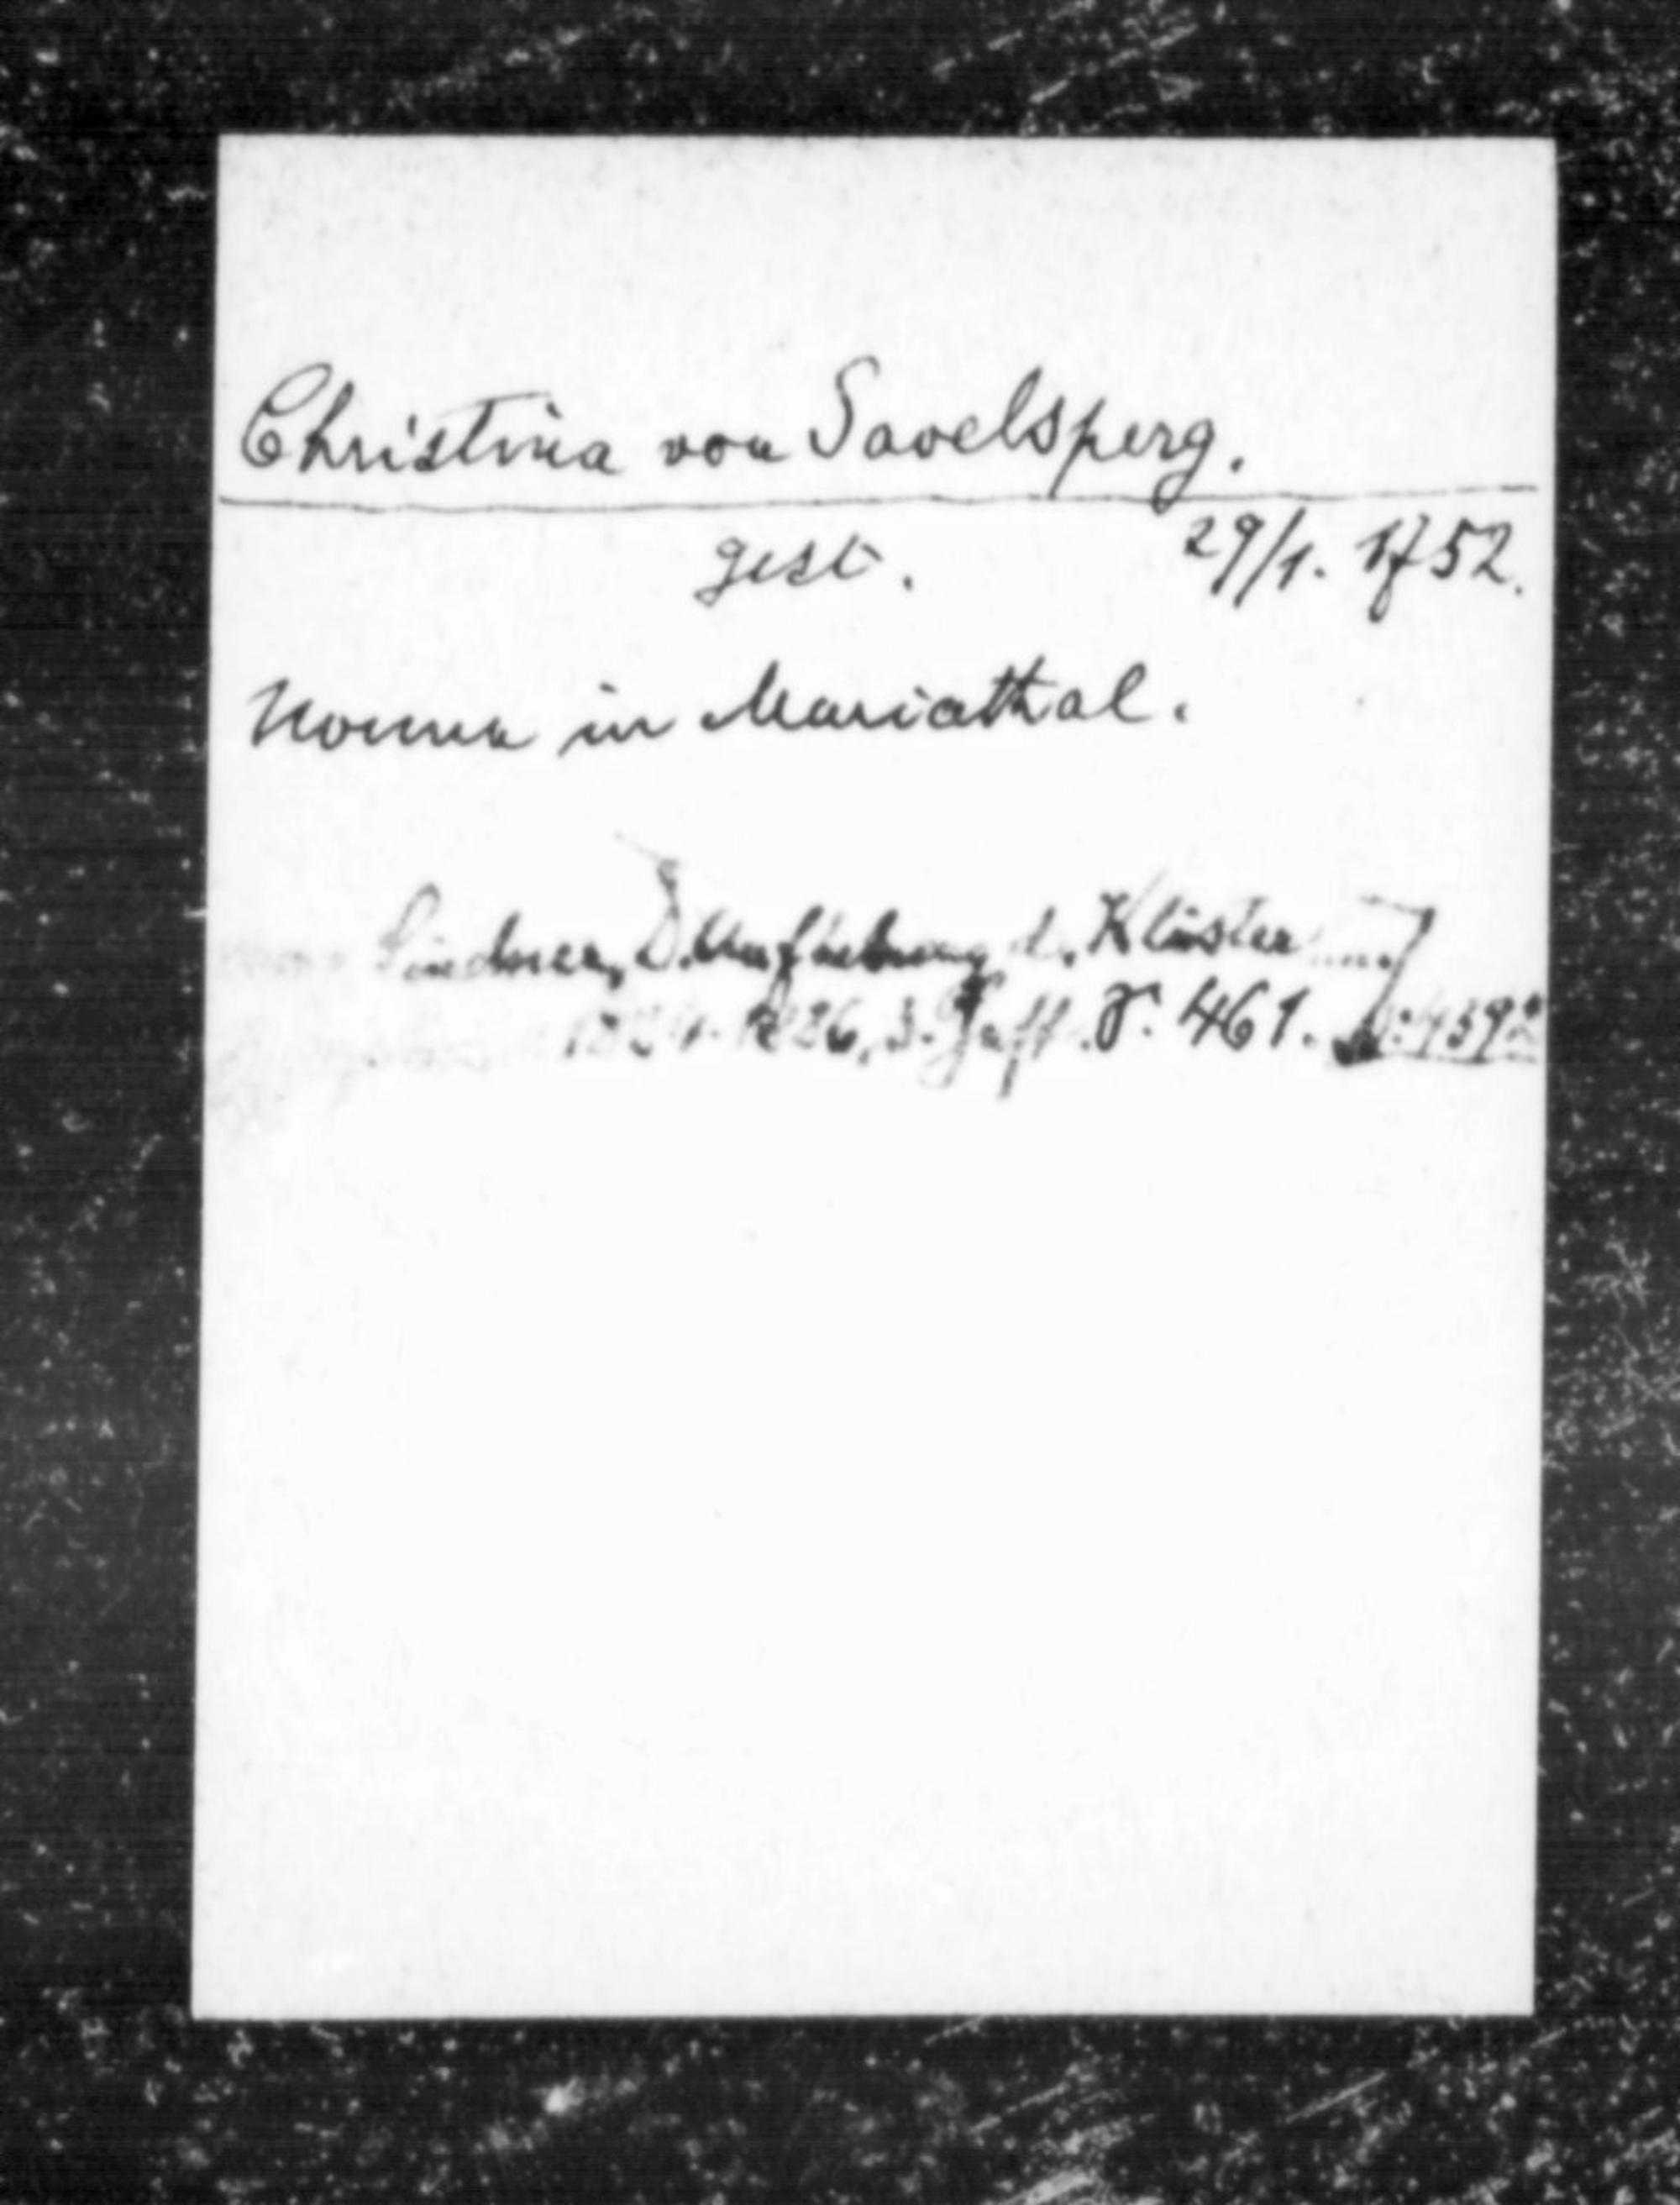 Christina von Savelsperg.
gest. 29/1. 1752.
Nonne in Mariathal.
Lindner, D. Aufhebung d. Klöster
1824-1826, 3. Heft. S. 461.